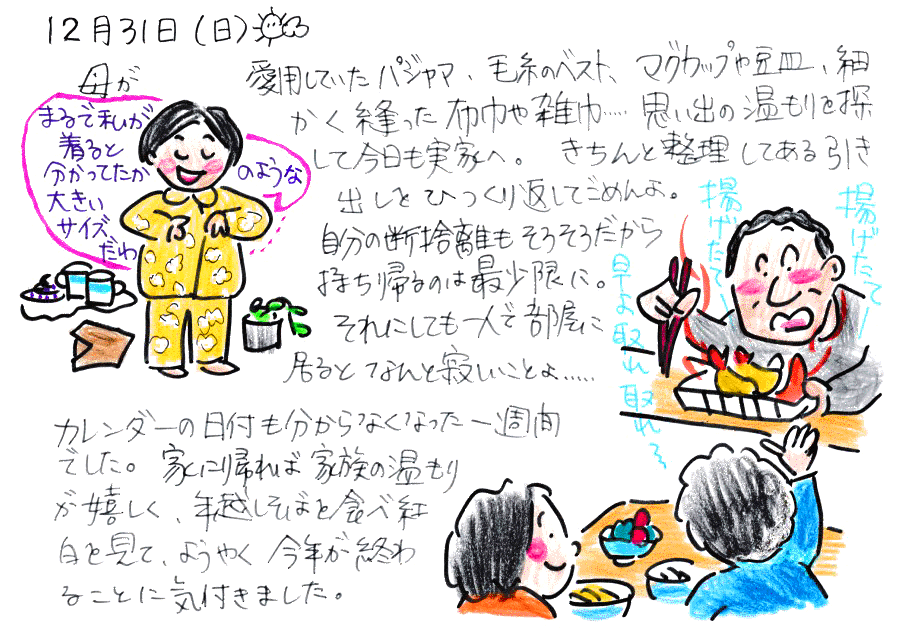 12月31日(日)
母が
愛用していたパジャマ、毛糸のベスト、マグカップや豆皿、細
かく縫った布巾や雑巾…… 思い出の温もりを探
して今日も実家へ。 きちんと整理してある引き
出しをひっくり返してごめんよ。
自分の断捨離もそろそろだから
持ち帰るのは最少限に。
それにしても一人で部屋に
居るとなんと寂しいことよ……
まるで私が
着ると
分かってたか
のような
大きい
サイズ
だわ
揚げたてー
揚げたて〜
早よ取れ取れ〜
カレンダーの日付も分からなくなった一週間
でした。 家に帰れば家族の温もり
が嬉しく、年越しそばを食べ紅
白を見て、ようやく今年が終わ
ることに気付きました。